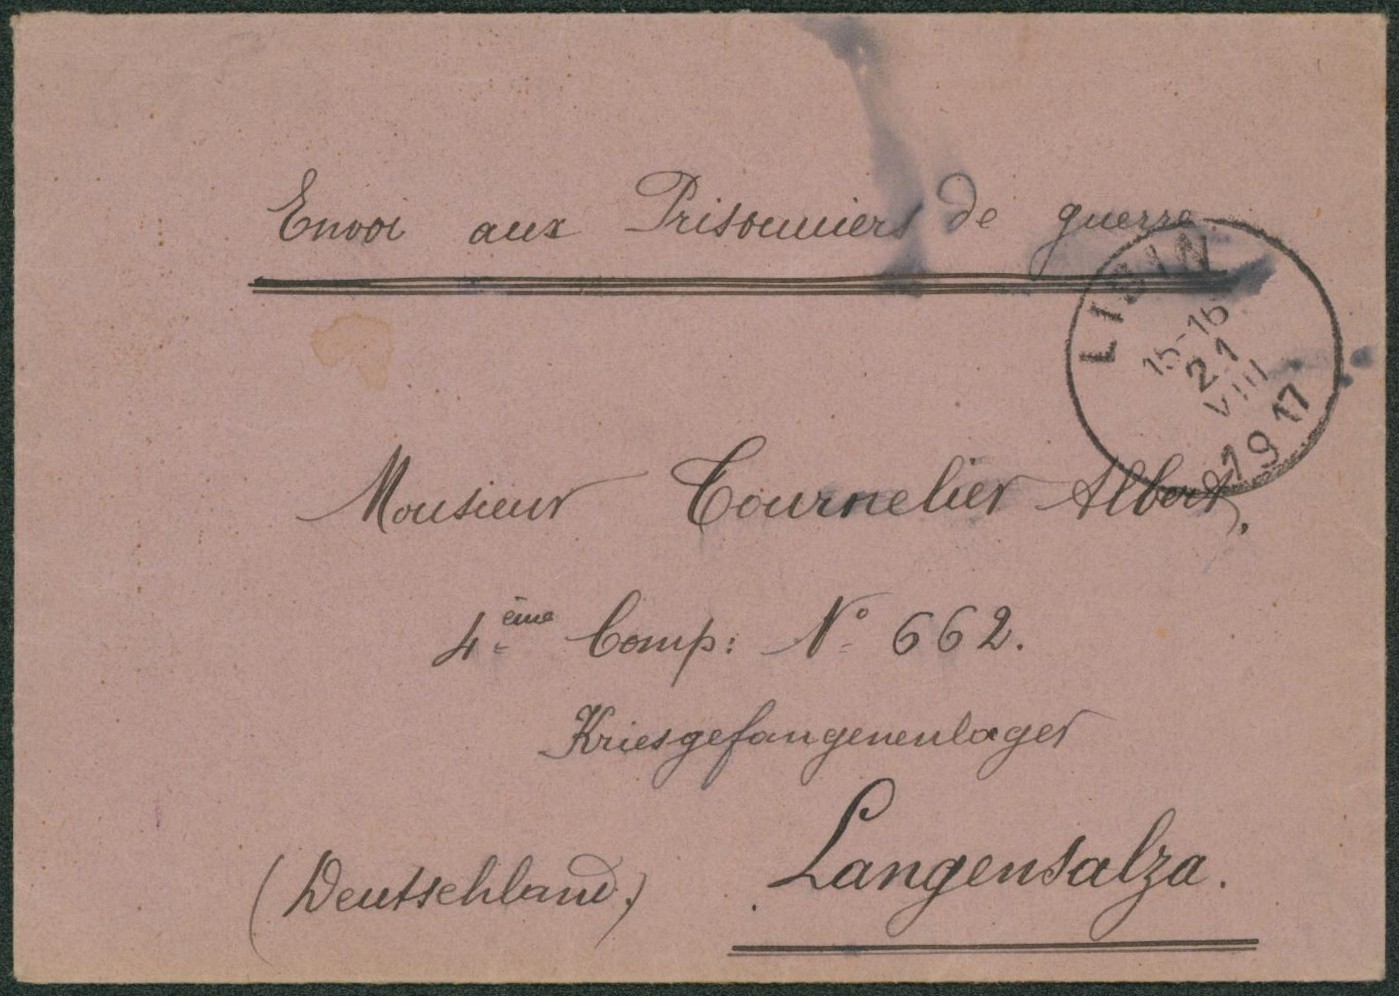 Envoi aux Prisonniers de guerre
LIBIN
15-16
21
VIII
1917
Monsieur Tournelier Albert,
4.ème Comp: N° 662.
Kriesgefangenenlager
Langensalza.
(Deutschland.)